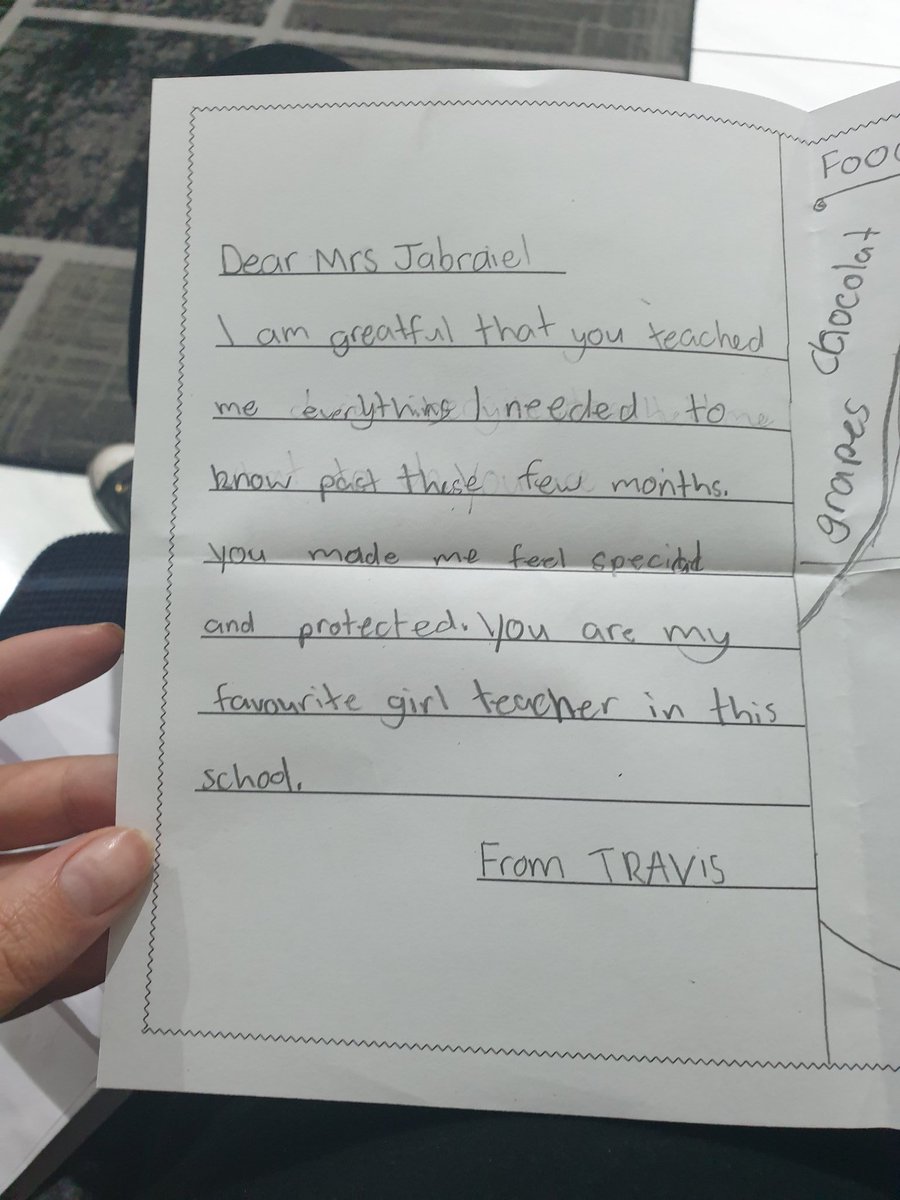 Dear Mrs Jabraiel
I am greatful that you teached
me everything I needed to
know past these few months.
you made me feel special
and protected. You are my
favourite girl teacher in this
school.
From TRAVIS
chocolat
grapes